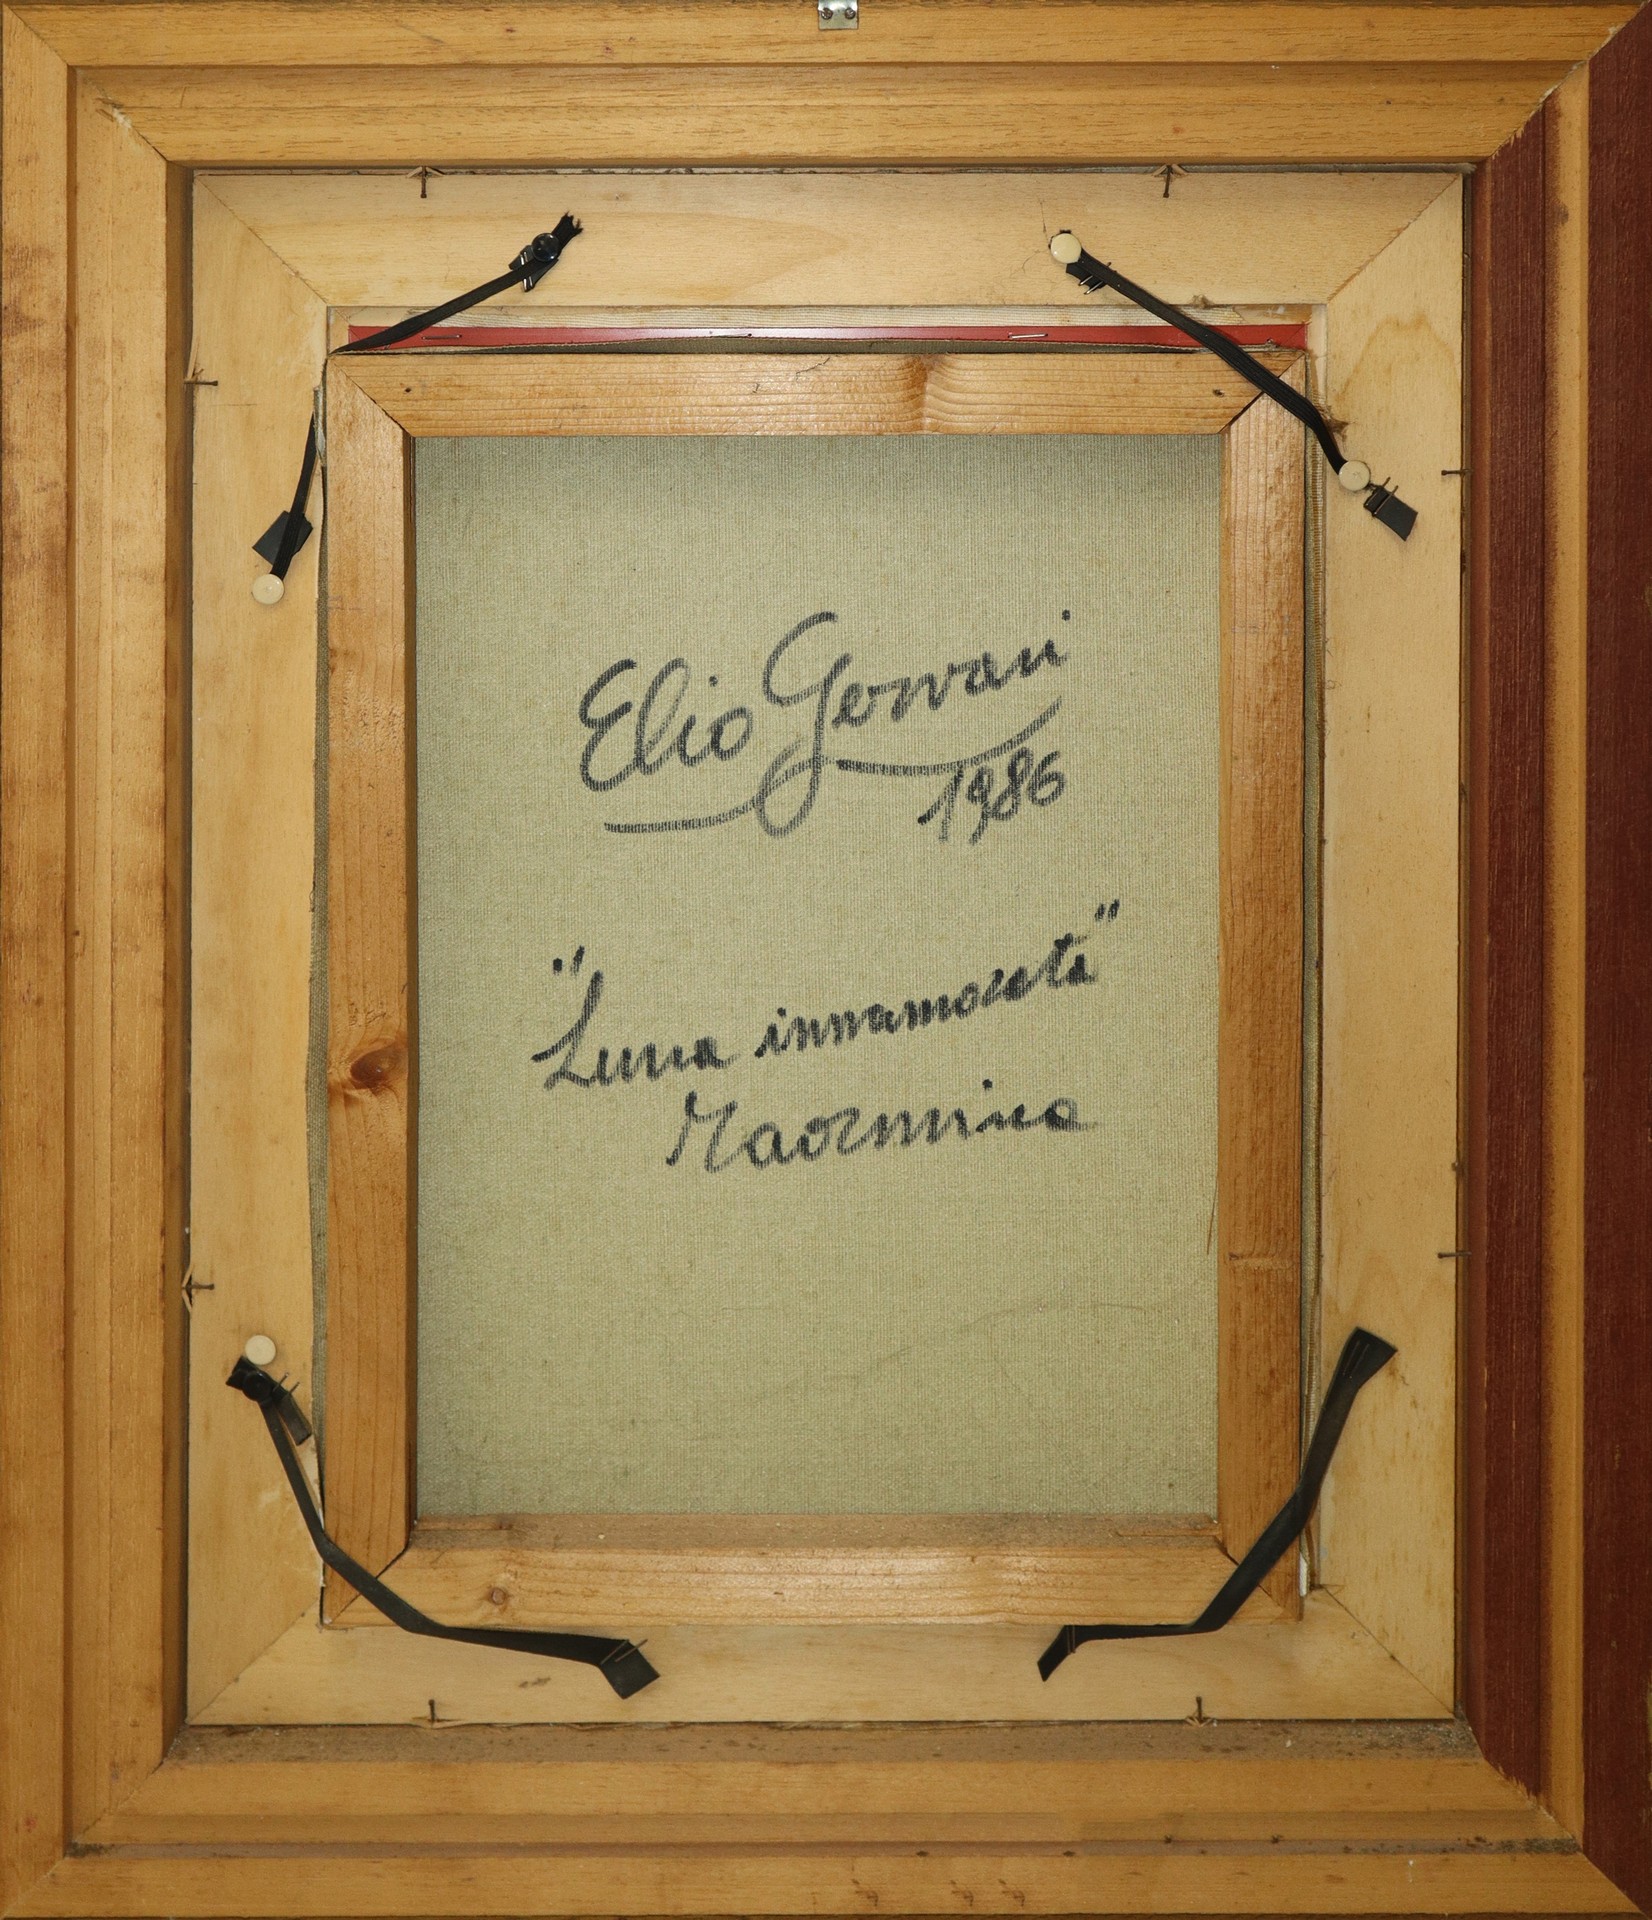 Elio Gervasi
1986
"Luna innamorata"
Taormina